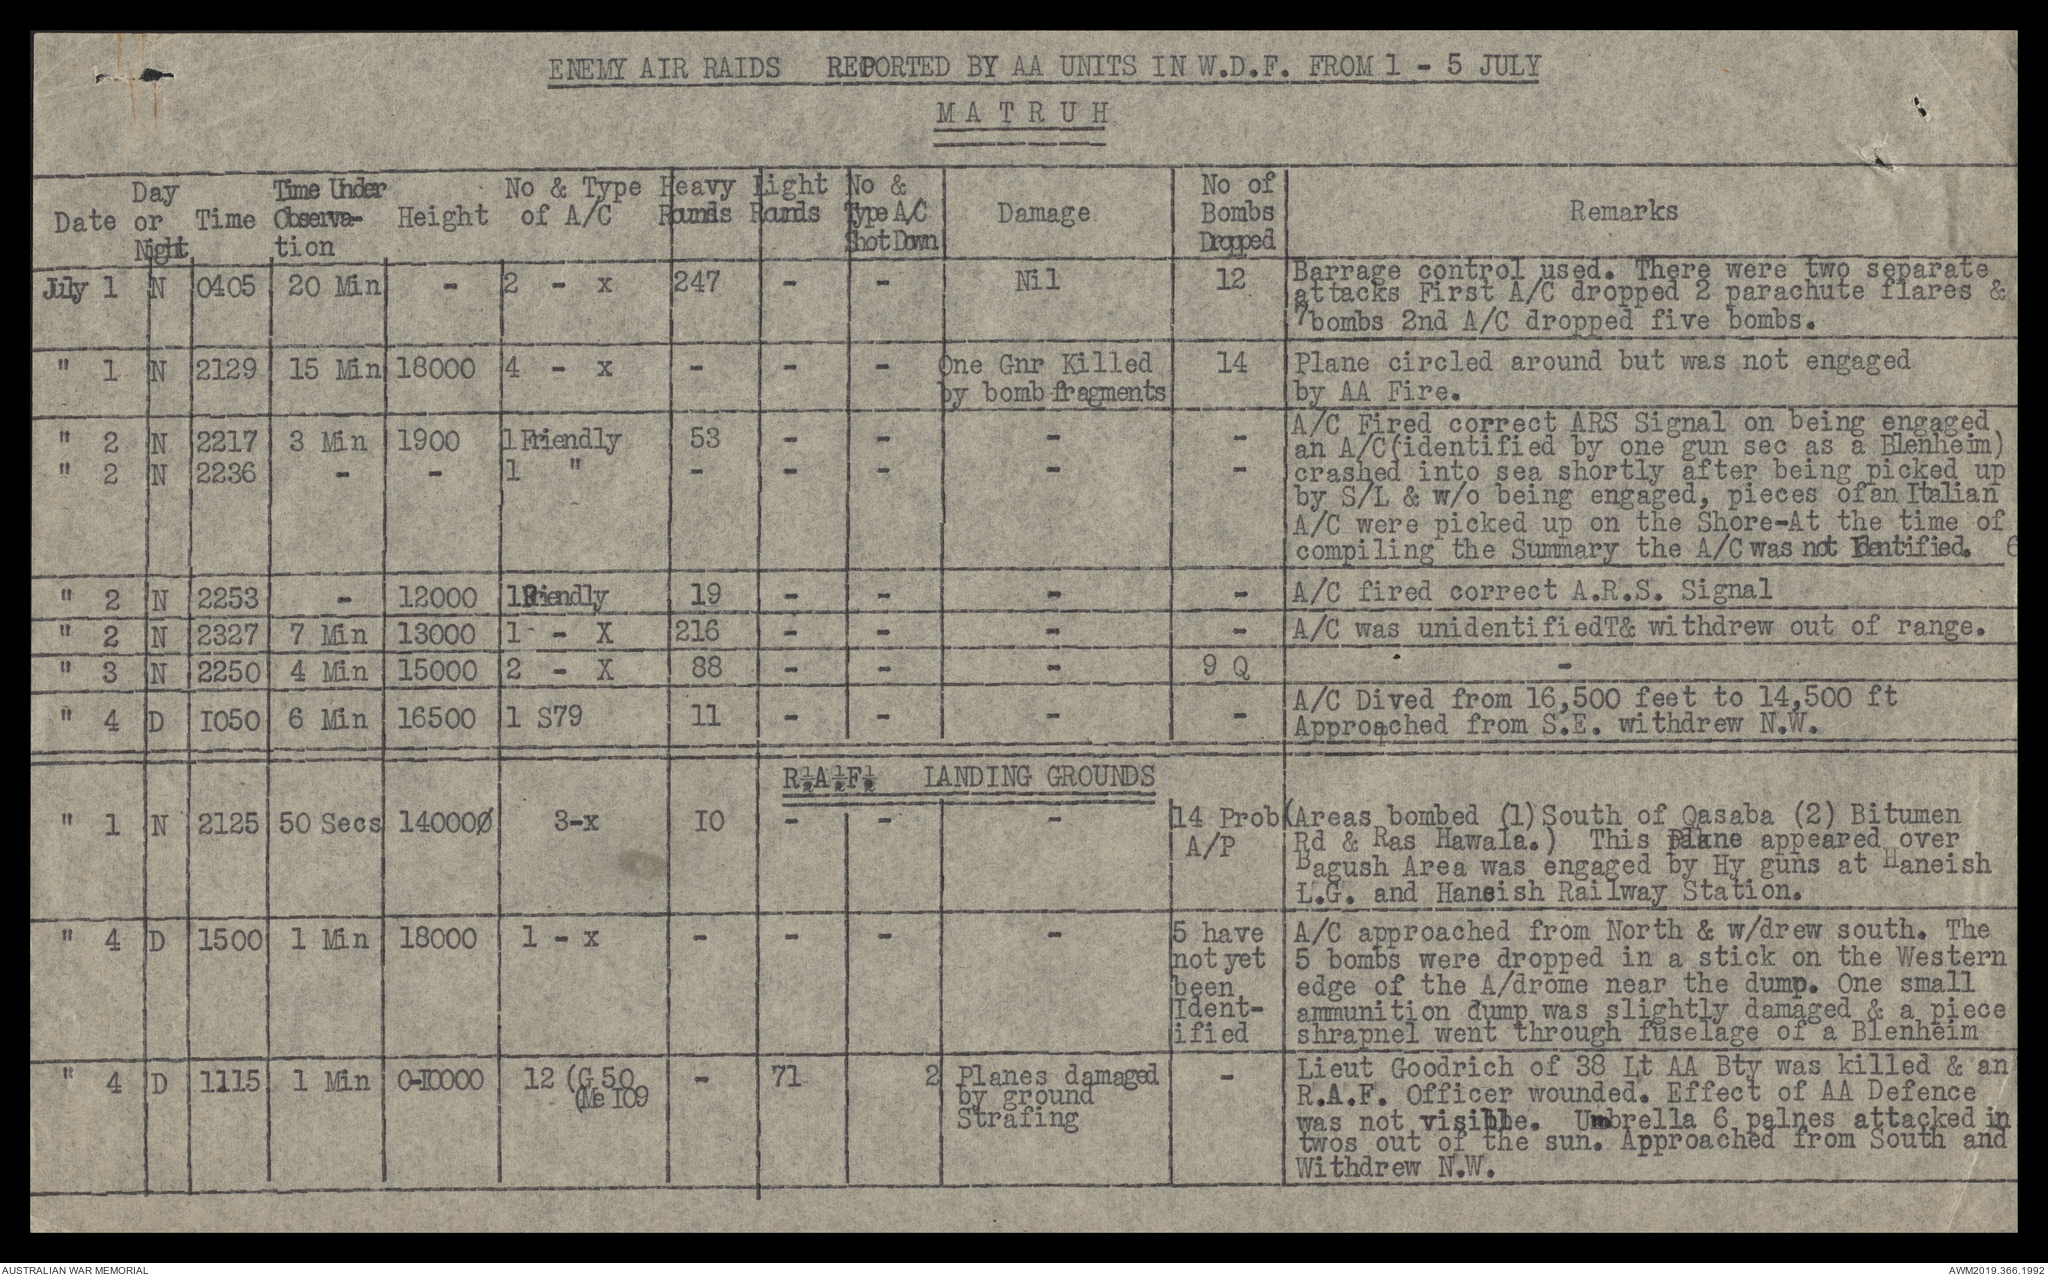 ENEMY AIR RAIDS REPORTED BY AA UNITS IN W.D.F. FROM 1 - 5 JULY
M A T R U H
Date Day or Night Time Time Under Observa-tion Height No & Type of A/C Heavy Rounds Light Rounds No & Type A/C Shot Down Damage No of Bombs Dropped Remarks
July 1 N 0405 20 Min - 2 - x 247 - - Nil 12 Barrage control used. There were two separate
attacks First A/C dropped 2 parachute flares &
7 bombs 2nd A/C dropped five bombs.
" 1 N 2129 15 Min 18000 4 - x - - - One Gnr Killed 14 Plane circled around but was not engaged
by bomb fragments by AA Fire.
" 2 N 2217 3 Min 1900 1 Friendly 53 - - - - A/C Fired correct ARS Signal on being engaged
an A/C(identified by one gun sec as a Blenheim)
" 2 N 2236 - - 1 " - - - - - crashed into sea shortly after being picked up
by S/L & w/o being engaged, pieces ofan Italian
A/C were picked up on the Shore-At the time of
compiling the Summary the A/C was not Identified. 6
" 2 N 2253 - 12000 1 Friendly 19 - - - - A/C fired correct A.R.S. Signal
" 2 N 2327 7 Min 13000 1 - X 216 - - - - A/C was unidentifiedT& withdrew out of range.
" 3 N 2250 4 Min 15000 2 - X 88 - - - 9 Q -
" 4 D I050 6 Min 16500 1 S79 11 - - - - A/C Dived from 16,500 feet to 14,500 ft
Approached from S.E. withdrew N.W.
R½A½F½ LANDING GROUNDS
" 1 N 2125 50 Secs 140000 3-x IO - - - 14 Prob (Areas bombed (1) South of Qasaba (2) Bitumen
A/P Rd & Ras Hawala.) This Plane appeared over
Bagush Area was engaged by Hy guns at Haneish
L.G. and Haneish Railway Station.
" 4 D 1500 1 Min 18000 1 - x - - - - 5 have A/C approached from North & w/drew south. The
not yet 5 bombs were dropped in a stick on the Western
been edge of the A/drome near the dump. One small
Ident- ammunition dump was slightly damaged & a piece
ified shrapnel went through fuselage of a Blenheim
" 4 D 1115 1 Min 0-I0000 12 (G 50 - 71 2 Planes damaged - Lieut Goodrich of 38 Lt AA Bty was killed & an
(Me 109 by ground R.A.F. Officer wounded. Effect of AA Defence
Strafing was not visible. Umbrella 6 palnes attacked in
twos out of the sun. Approached from South and
Withdrew N.W.
AUSTRALIAN WAR MEMORIAL AWM2019.366.1992